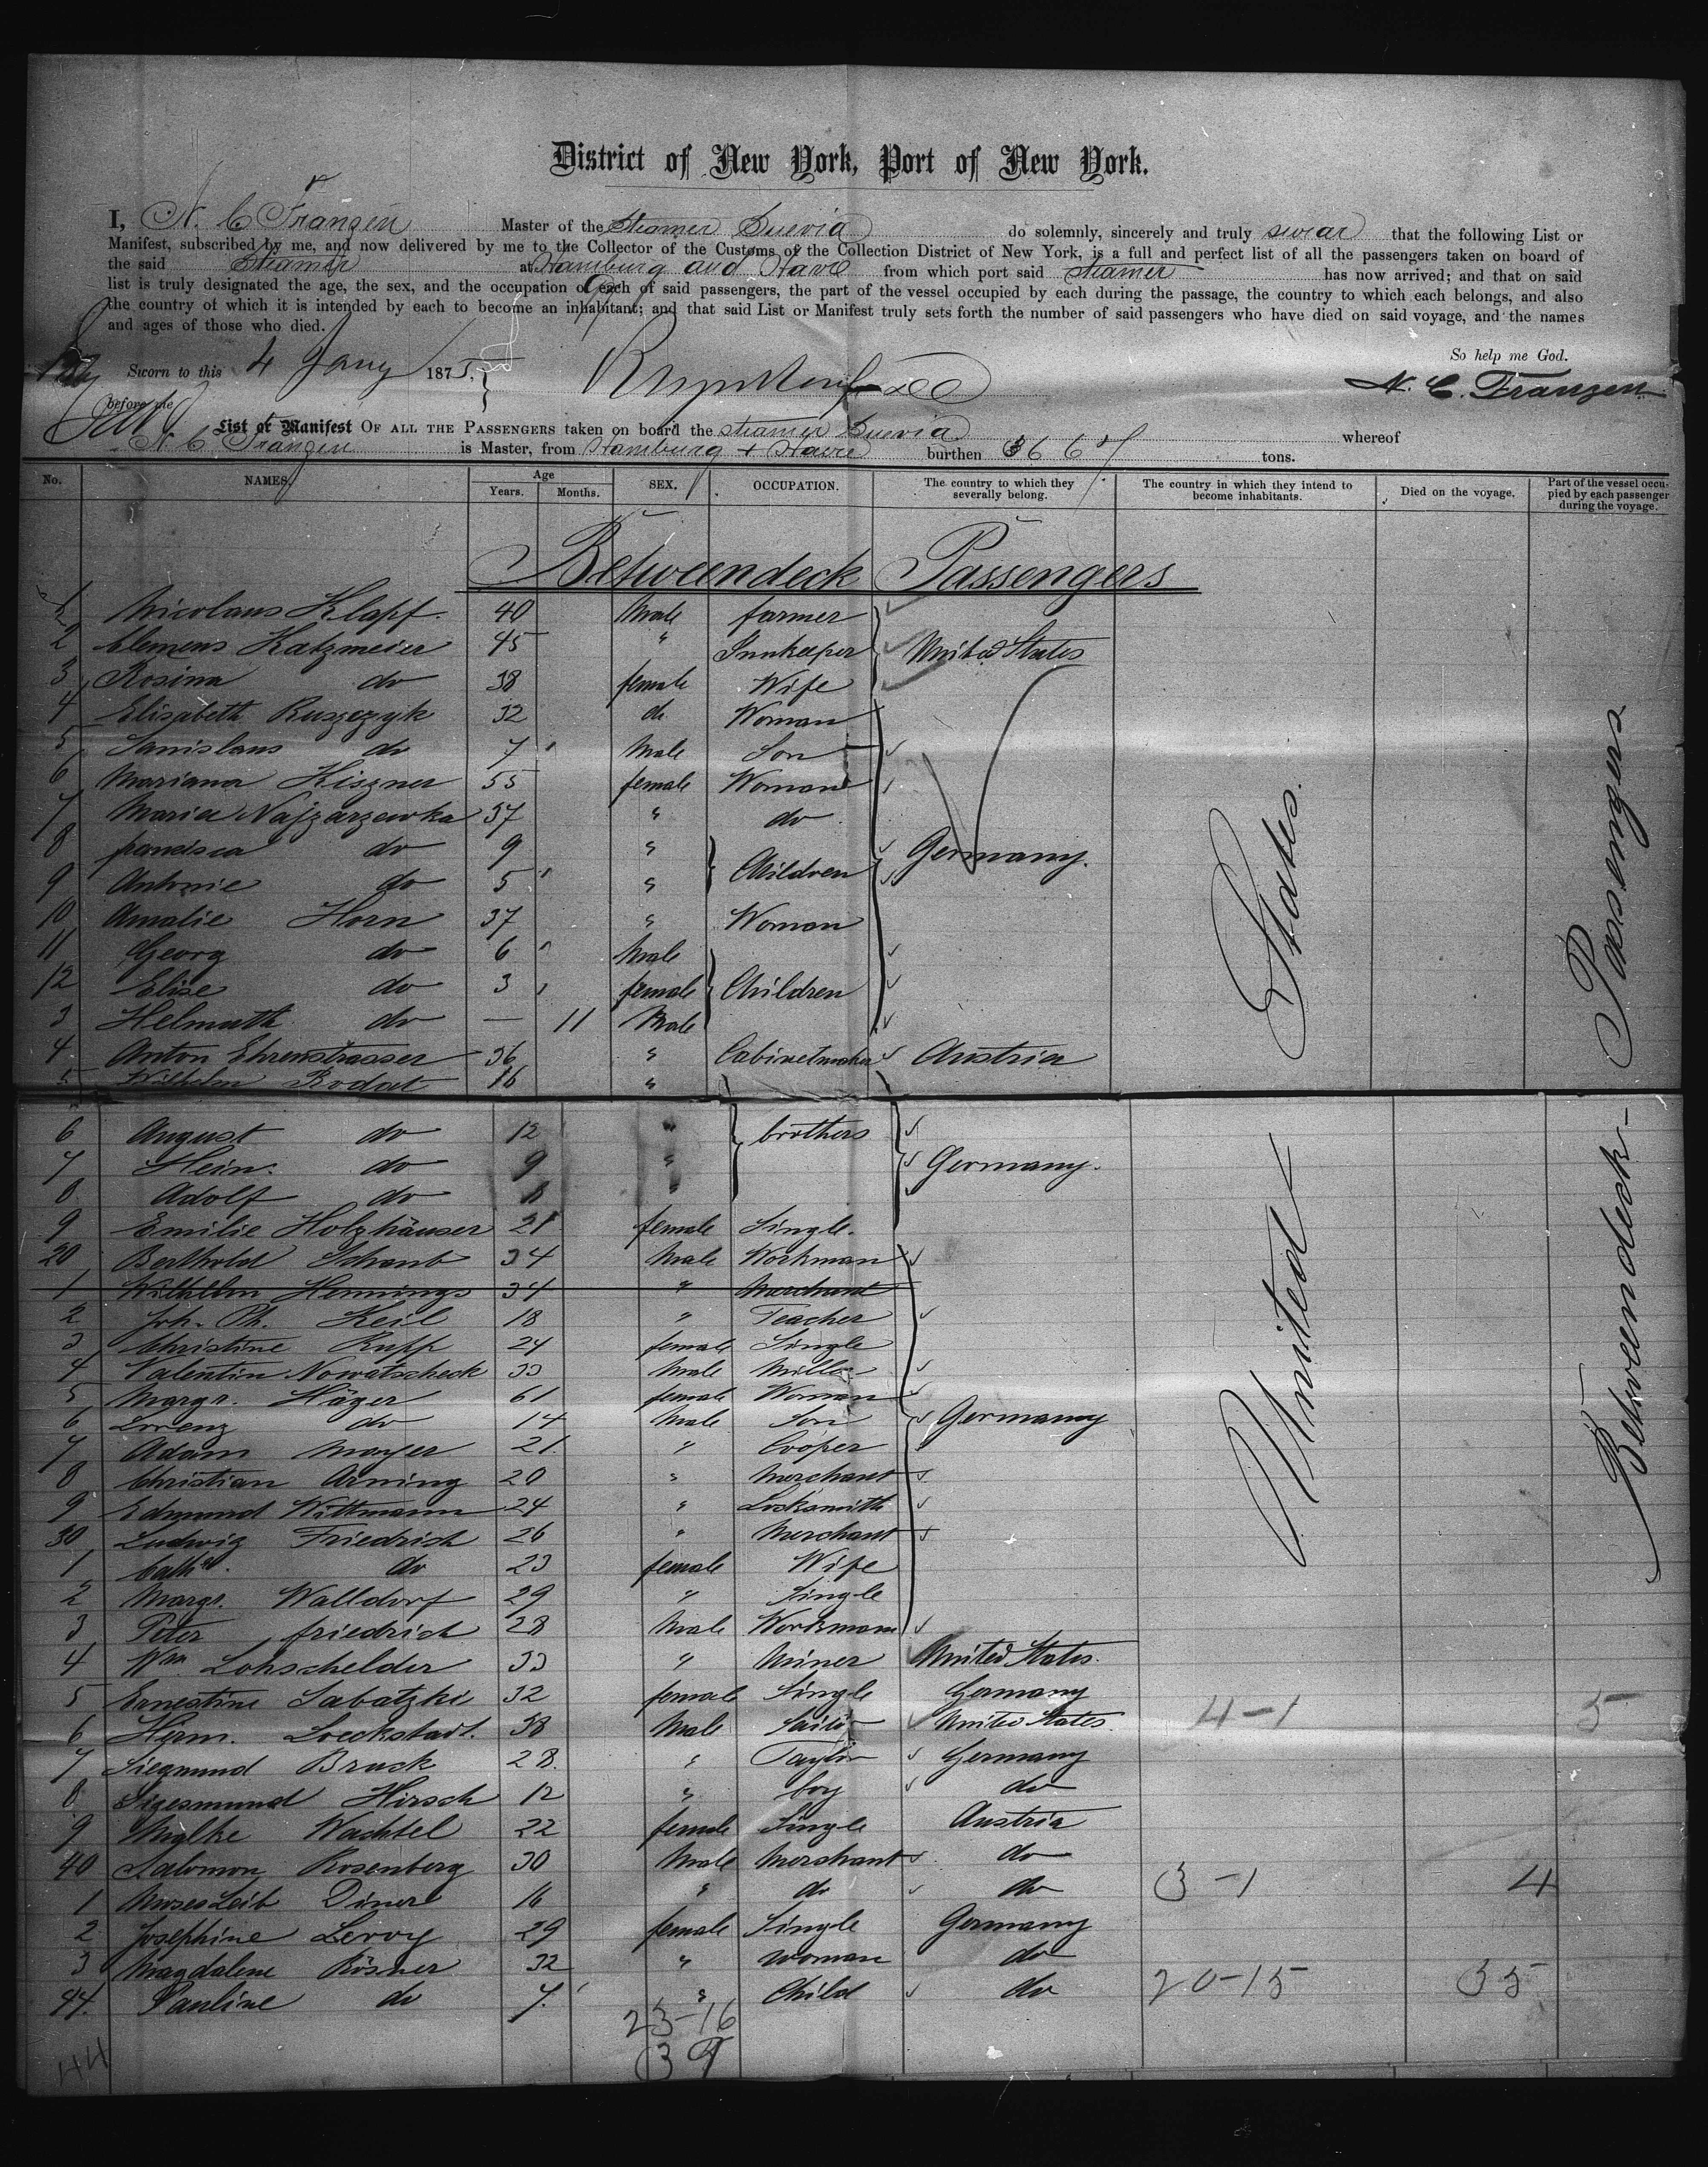 District of New York, Port of New York.
I, N. C. Franzen Master of the Steamer Suevia do solemnly, sincerely and truly swear that the following List or
Manifest, subscribed by me, and now delivered by me to the Collector of the Customs of the Collection District of New York, is a full and perfect list of all the passengers taken on board of
the said Steamer at Hamburg and Havre from which port said steamer has now arrived; and that on said
list is truly designated the age, the sex, and the occupation of each of said passengers, the part of the vessel occupied by each during the passage, the country to which each belongs, and also
the country of which it is intended by each to become an inhabitant; and that said List or Manifest truly sets forth the number of said passengers who have died on said voyage, and the names
and ages of those who died.
So help me God.
Sworn to this 4 Jany 1875.
N. C. Franzen
before me
List or Manifest OF ALL THE PASSENGERS taken on board the steamer Suevia whereof
N. C. Franzen is Master, from Hamburg + Havre burthen 3667 tons.
No. NAMES, Age Years. Months. SEX, OCCUPATION. The country to which they severally belong. The country in which they intend to become inhabitants. Died on the voyage. Part of the vessel occupied by each passenger during the voyage.
Betweendeck Passengers
1 Nicolaus Klapf. 40 Male farmer
2 Clemens Katzmeier 45 " Innkeeper United States
3 Rosina do 38 female Wife
4 Elisabeth Ruszczyk 32 do Woman
5 Sanislaus do 7 Male Son
6 Mariana Kiszner 55 female Woman
7 Maria Najzarzewka 37 " do
8 francisca do 9 "
9 Antonie do 5 " Children Germany.
10 Amalie Horn 37 " Woman
11 Georg do 6 Male
12 Elise do 3 female Children
3 Helmuth do — 11 Male
4 Anton Ehrenstrasser 36 " Cabinetmaker Austria
5 Wilhelm Rodat 16 "
6 August do 12 " brothers
7 Hein. do 9 " Germany.
8 Adolf do 8 "
9 Emilie Holzhäuser 21 female Single.
20 Berthold Schaub 34 Male Workman
1 Wilhelm Hennings 34 " Merchant
2 Joh. Ph. Keil 18 " Teacher
3 Christine Rupp 24 female Single
4 Valentin Nowatscheck 33 Male Miller
5 Margr. Häger 61 female Woman
6 Lorenz do 14 Male Son Germany
7 Adam Mayer 21 " Cooper
8 Christian Arning 20 " Merchant
9 Edmund Wittmann 24 " Locksmith
30 Ludwig Friedrich 26 " Merchant
1 Cath. do 23 female Wife
2 Margr. Walldorf 29 " Single
3 Peter friedrich 28 Male Workman
4 Wm Lohschelder 33 " Miner United States.
5 Ernestine Sabatzki 32 female Single Germany
6 Herm. Loeckstadt. 38 Male United States. 4-1 5
7 Siegmund Bruck 28. " Taylor Germany
8 Sigesmund Hirsch 12 " boy do
9 Wachtel 22 female Single Austria
40 Salomon Rosenberg 30 Male Merchant do
1 Moses Leib Diner 16 " do do 3-1 4
2 Josephine Leroy 29 female Single Germany
3 Magdalene Rösner 32 " woman do
44. Pauline do 7. " Child do 20-15 35
23-16
39
44
United States.
Betweendeck Passengers